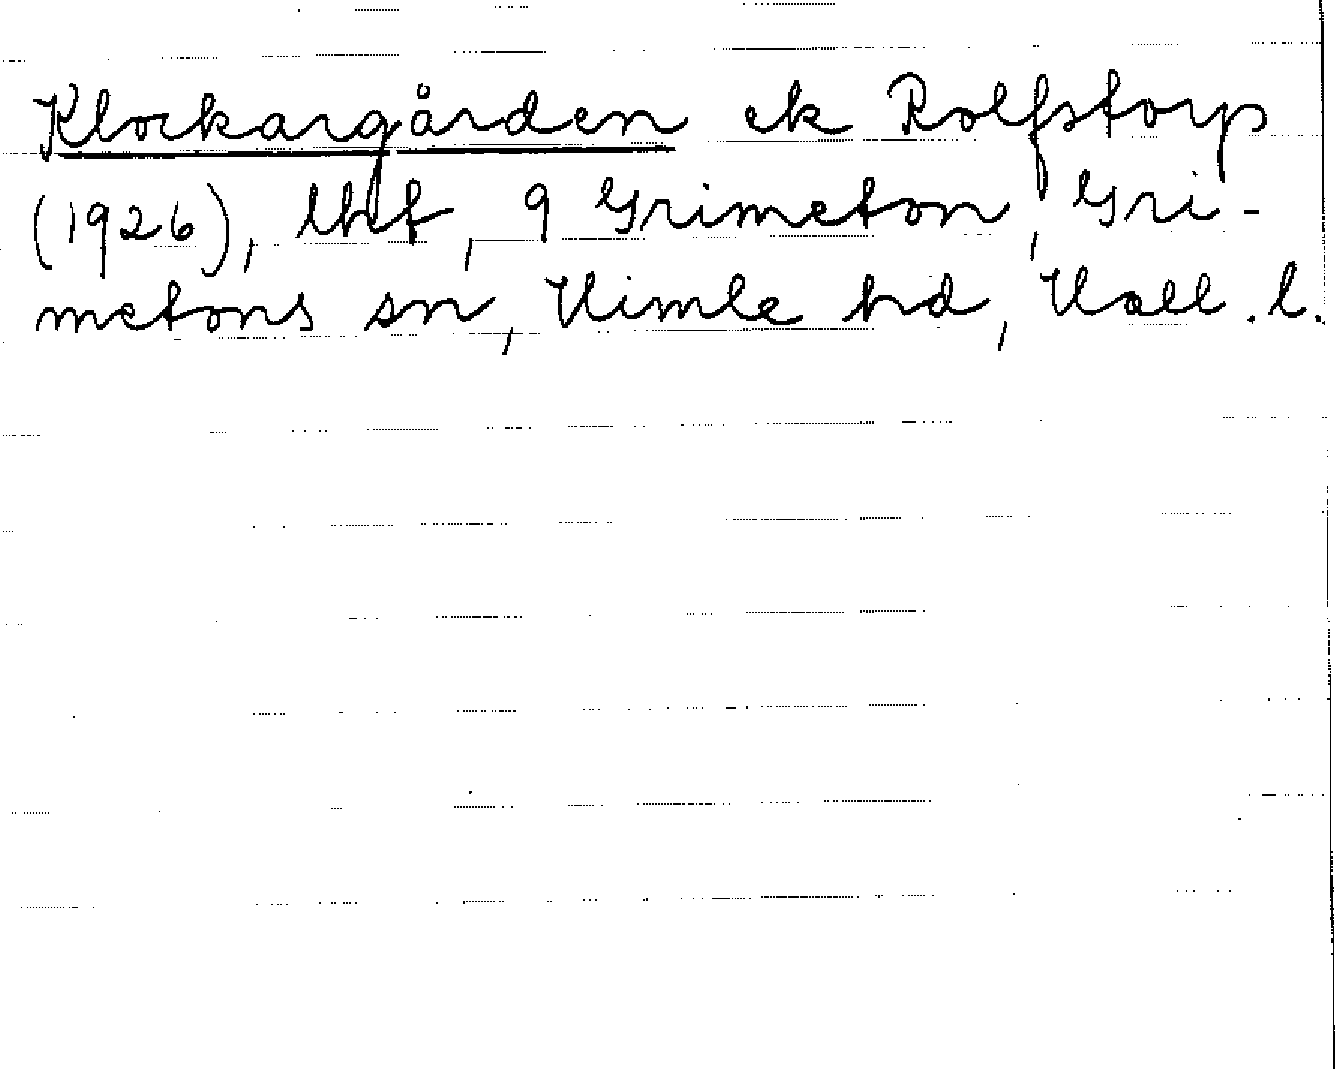 Klockargården ek Rolfstorp
(1926), lht, 9 Grimeton, Gri-
metons sn, Himle hd, Hall. l.